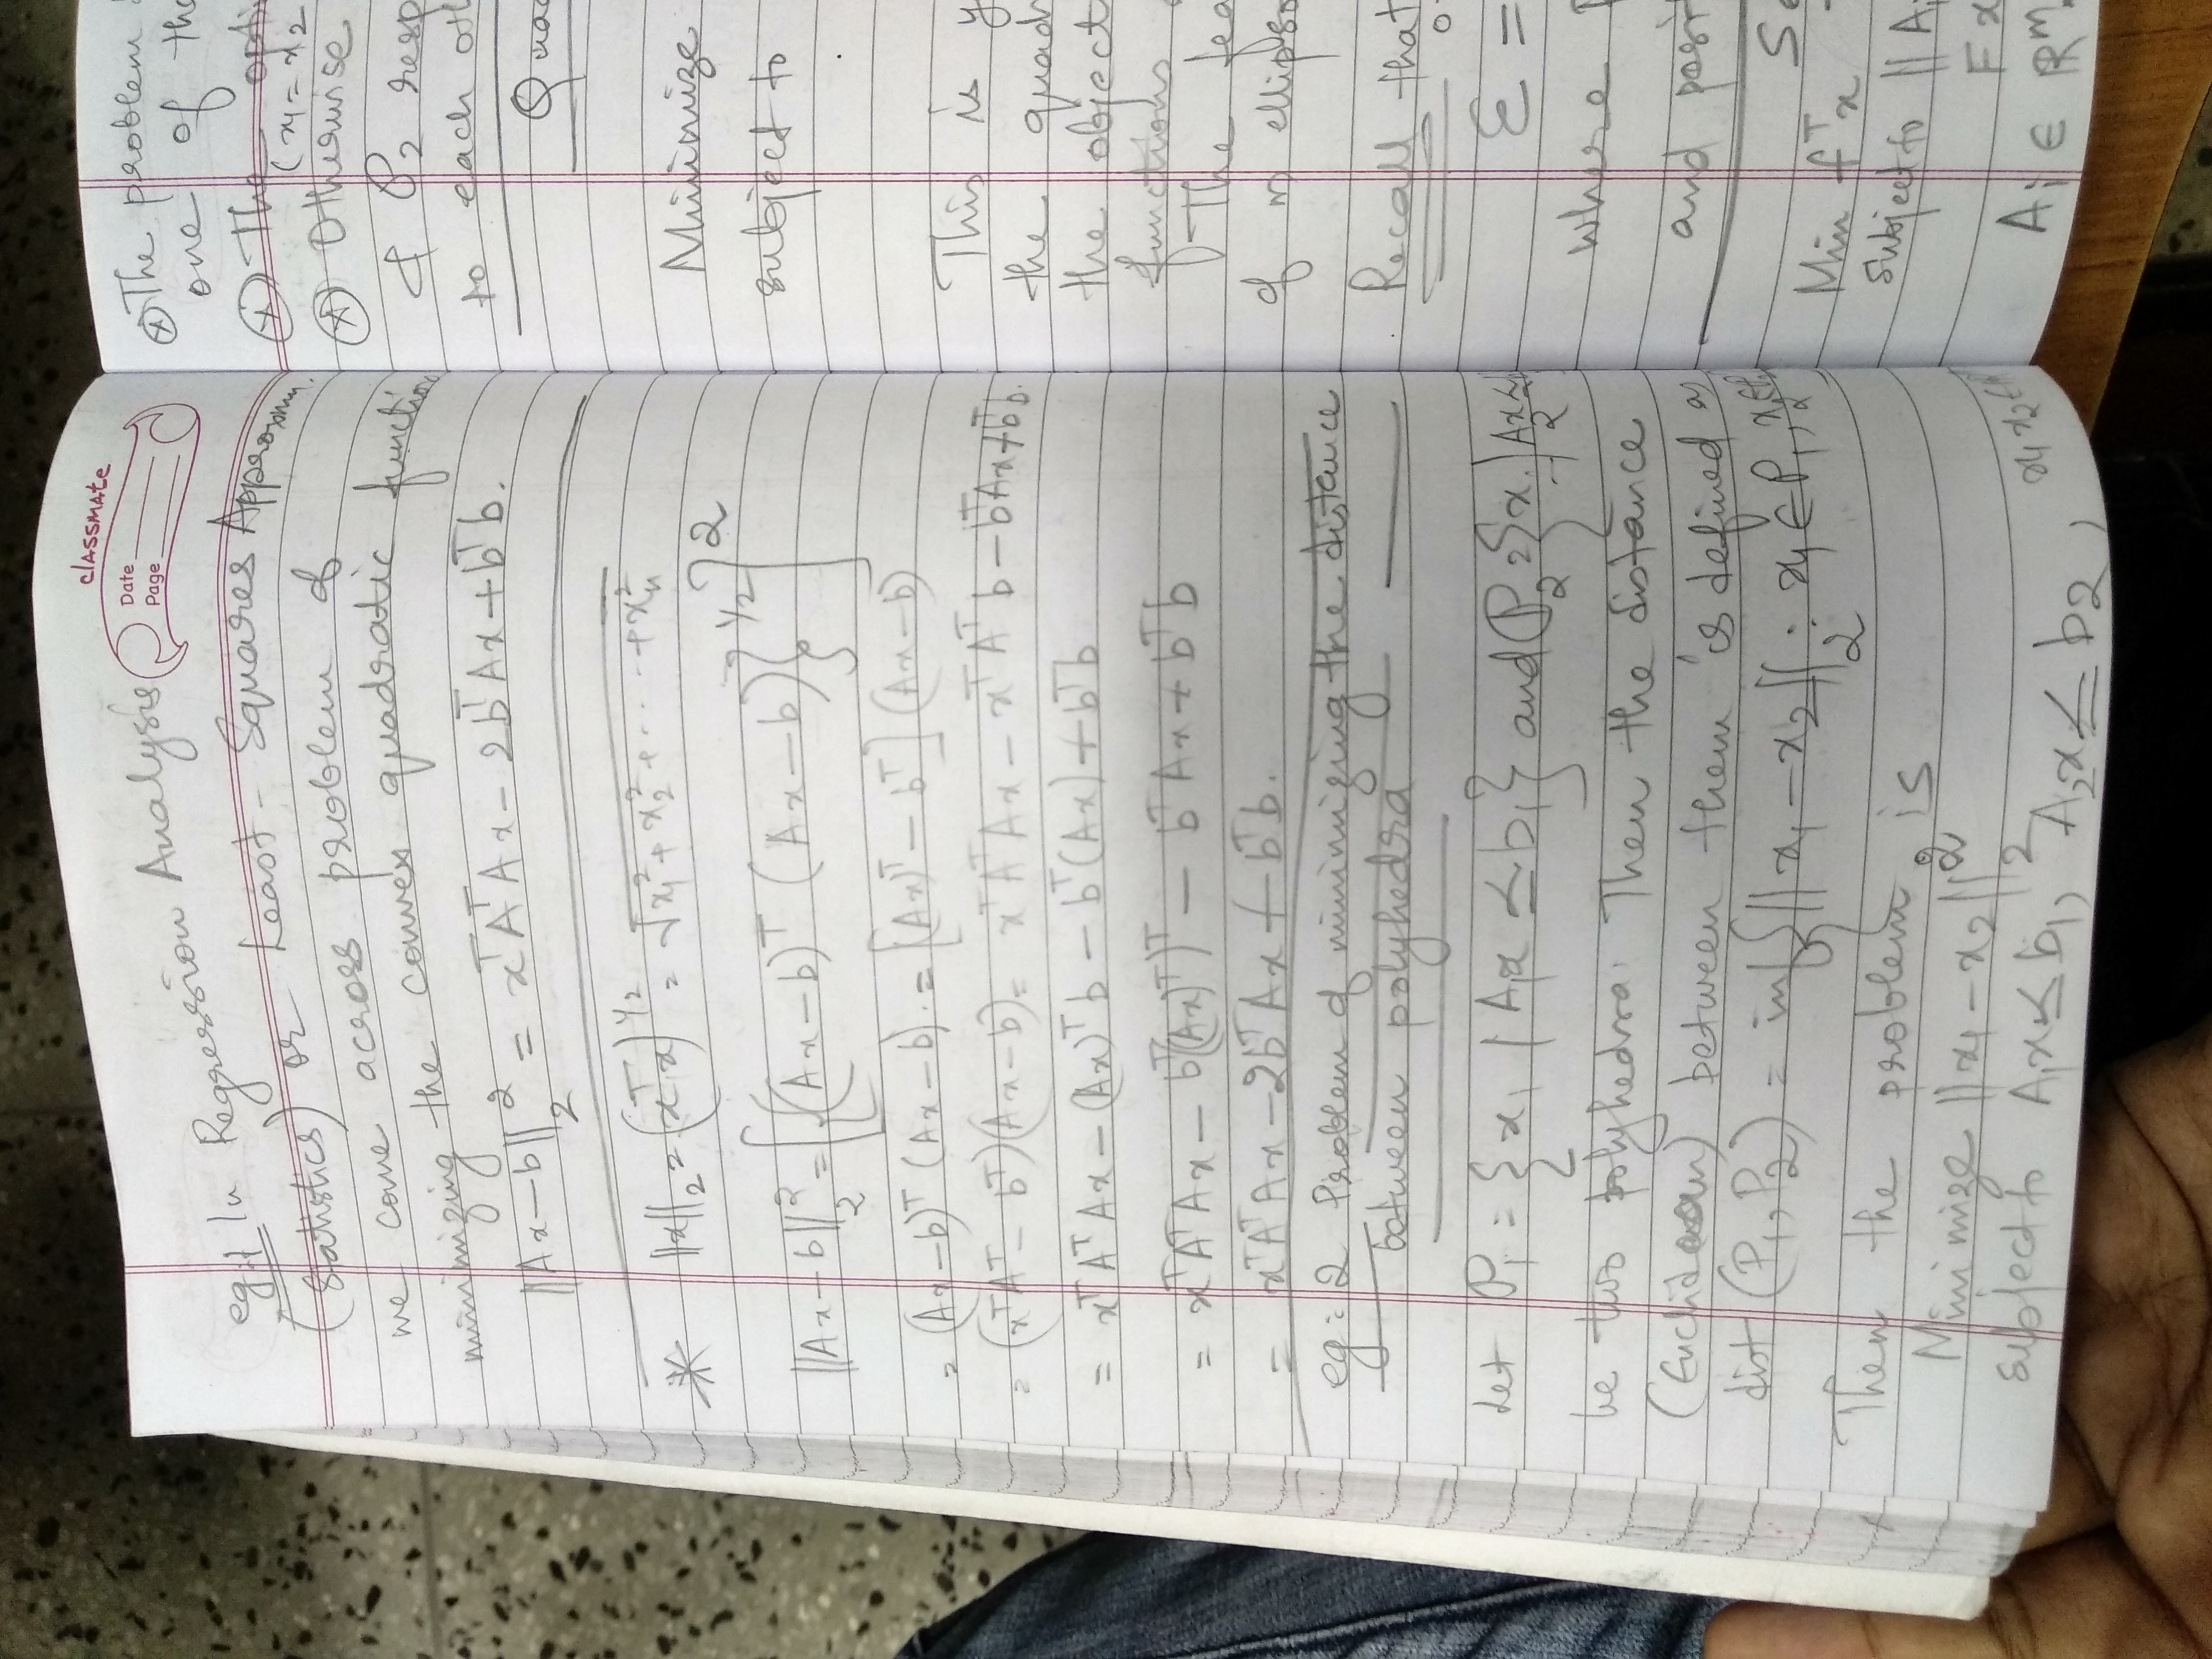 classmate
Date
Page
eg:1 In Regression Analysis
(Statistics) or Least-Squares Approxm.
we come across problem of
minimizing the convex quadratic function
||Ax-b||₂² = xᵀAᵀAx - 2bᵀAx + bᵀb.
* ||x||₂ = (xᵀx)^1/2 = √x₁² + x₂² + ..... + xₙ²
||Ax-b||₂² = [{(Ax-b)ᵀ (Ax-b)}^1/2]²
= (Ax-b)ᵀ (Ax-b). = [(Ax)ᵀ - bᵀ] (Ax-b)
= (xᵀAᵀ - bᵀ)(Ax-b) = xᵀAᵀAx - xᵀAᵀb - bᵀAx + bᵀb.
= xᵀAᵀAx - (Ax)ᵀb - bᵀ(Ax) + bᵀb
= xᵀAᵀAx - bᵀ((Ax)ᵀ)ᵀ - bᵀAx + bᵀb
= xᵀAᵀAx - 2bᵀAx + bᵀb.
eg: 2 Problem of minimizing the distance
between polyhedra
Let P₁ = {x₁ | A₁x ≤ b₁} and P₂ = {x | A₂x ≤
be two polyhedra. Then the distance
(Euclidean) between them is defined as
dist (P₁, P₂) = inf{||x₁ - x₂||₂ : x₁ ∈ P₁, x₂ ∈ P
Then the problem is
Minimize ||x₁ - x₂||₂²
subject to A₁x ≤ b₁, A₂x ≤ b₂, x₁ x₂ ∈
⊛ The problem
one of the
⊛ The opti
(x₁ = x₂
⊛ Otherwise
& P₂ resp
to each oth
Quad
Minimize
subject to
This is y
the quadr
the object
functions
The fea
of n ellipso
Recall that
ℰ =
where P
and posit
Se
Min fᵀx
Subject to ||Aᵢ
Fx
Aᵢ ∈ ℝᵐ